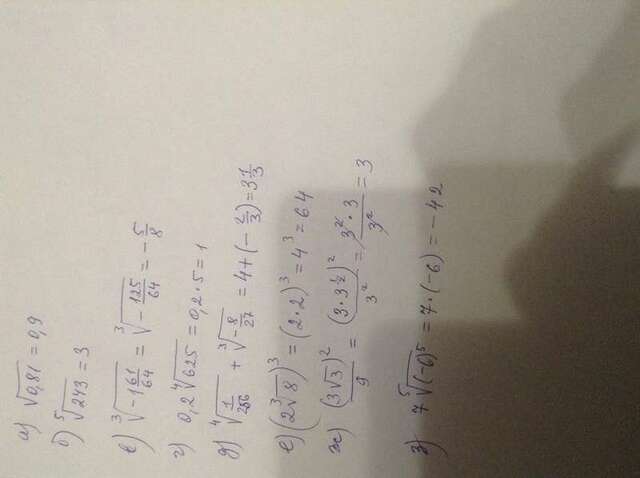 а) √0,81 = 0,9
б) ⁵√243 = 3
в) ³√(-1 61/64) = ³√(-125/64) = -5/8
г) 0,2 ⁴√625 = 0,2·5 = 1
д) ⁴√(1/256) + ³√(-8/27) = 4+(-2/3) = 3 1/3
е) (2 ³√8)³ = (2·2)³ = 4³ = 64
ж) (3√3)²/9 = (3·3^(1/2))²/3² = 3²·3/3² = 3
з) 7 ⁵√(-6)⁵ = 7·(-6) = -42